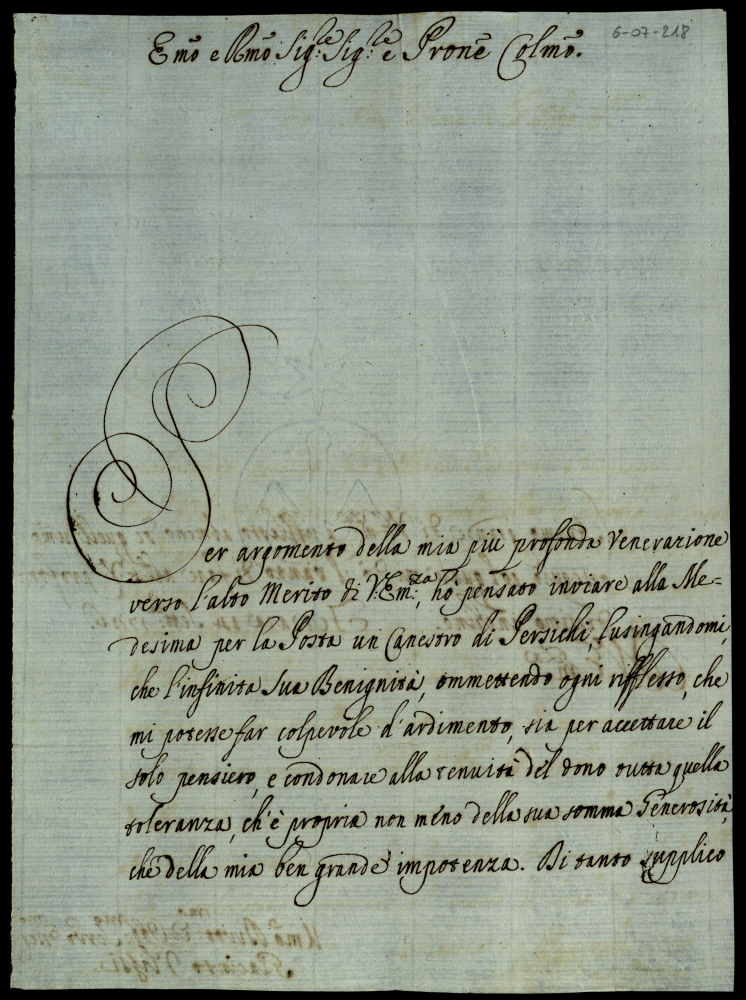 6-07-218
Emo e Rmo Sig.re Sig.re e Prone Colmo.
Per argomento della mia più profonda Venerazione
verso l'alto Merito di V. Em.za, hò pensato inviare alla Me=
desima per la Posta un Canestro di Persichi, lusingandomi,
che l'infinita sua Benignità, ommettendo ogni riflesso, che
mi potesse far colpevole d'ardimento, sia per accettare il
solo pensiero, e condonare alla tenuità del dono tutta quella
toleranza, ch'è propria non meno della sua somma Generosità,
che della mia ben grande impotenza. Di tanto supplico